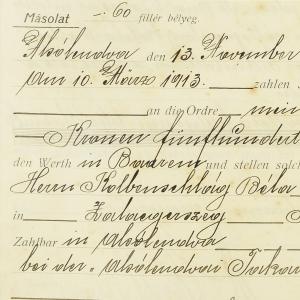 Másolat -.60 fillér bélyeg.
Alsólendva den 13. November
Am 10. März 1913. zahlen
an die Ordre mein
Kronen fünfhundert
den Werth in Baarem und stellen solch
Herrn Kolbenschlág Béla
in Zalaegerszeg
Zahlbar in Alsólendva
bei der „Alsólendvai Takar